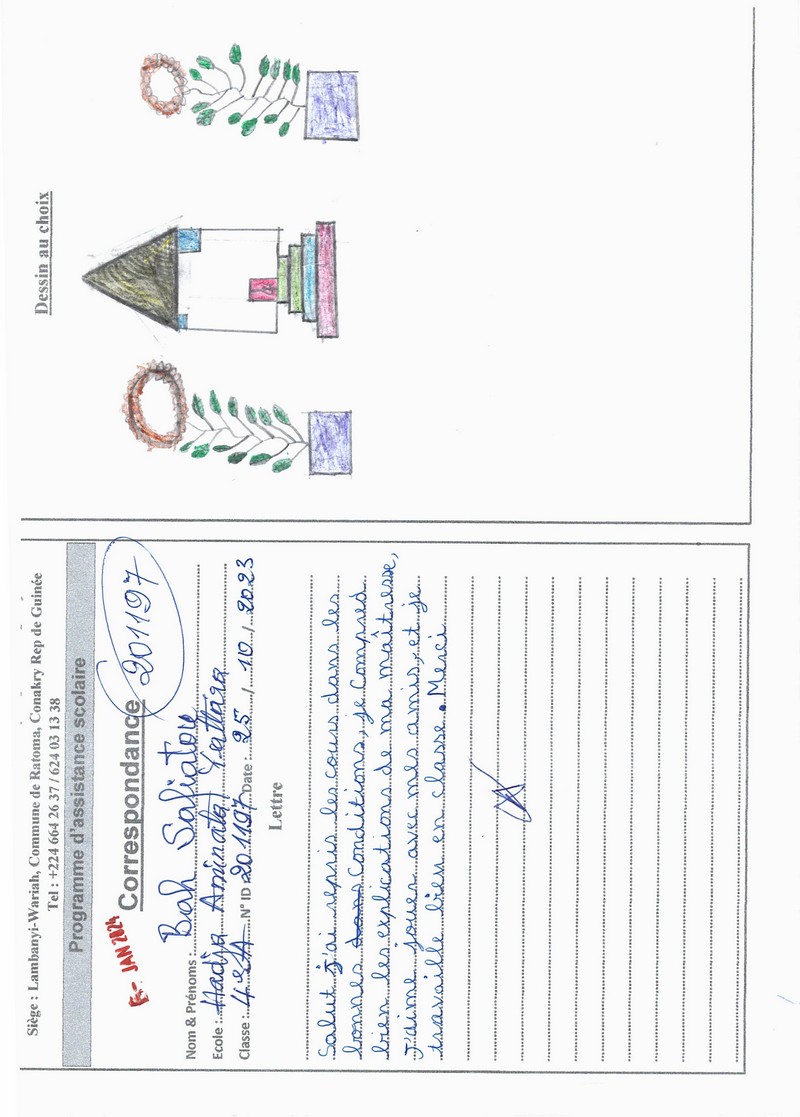 Siège : Lambanyi-Wariah, Commune de Ratoma, Conakry Rep de Guinée
Tel : +224 664 26 37 / 624 03 13 38
Programme d'assistance scolaire
E- JAN 2024
Correspondance 201197
Nom & Prénoms : Bah Safiatou
Ecole : Hadja Aminata Yattara
Classe : 4èA N° ID 201197 Date : 25 / 10 / 2023
Lettre
Salut j'ai repris les cours dans les
bonnes dans conditions, je Comprend
bien les explications de ma maîtresse,
J'aime joues avec mes amis, et je
travaille bien en classe. Merci
Dessin au choix